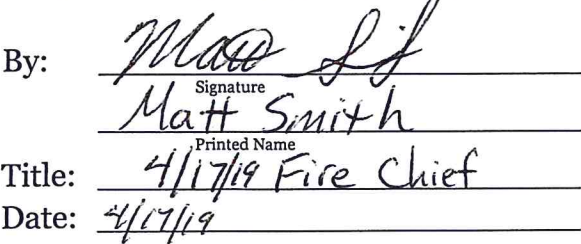 By: Matt S
Signature
Matt Smith
Printed Name
Title: 4/17/19 Fire Chief
Date: 4/17/19